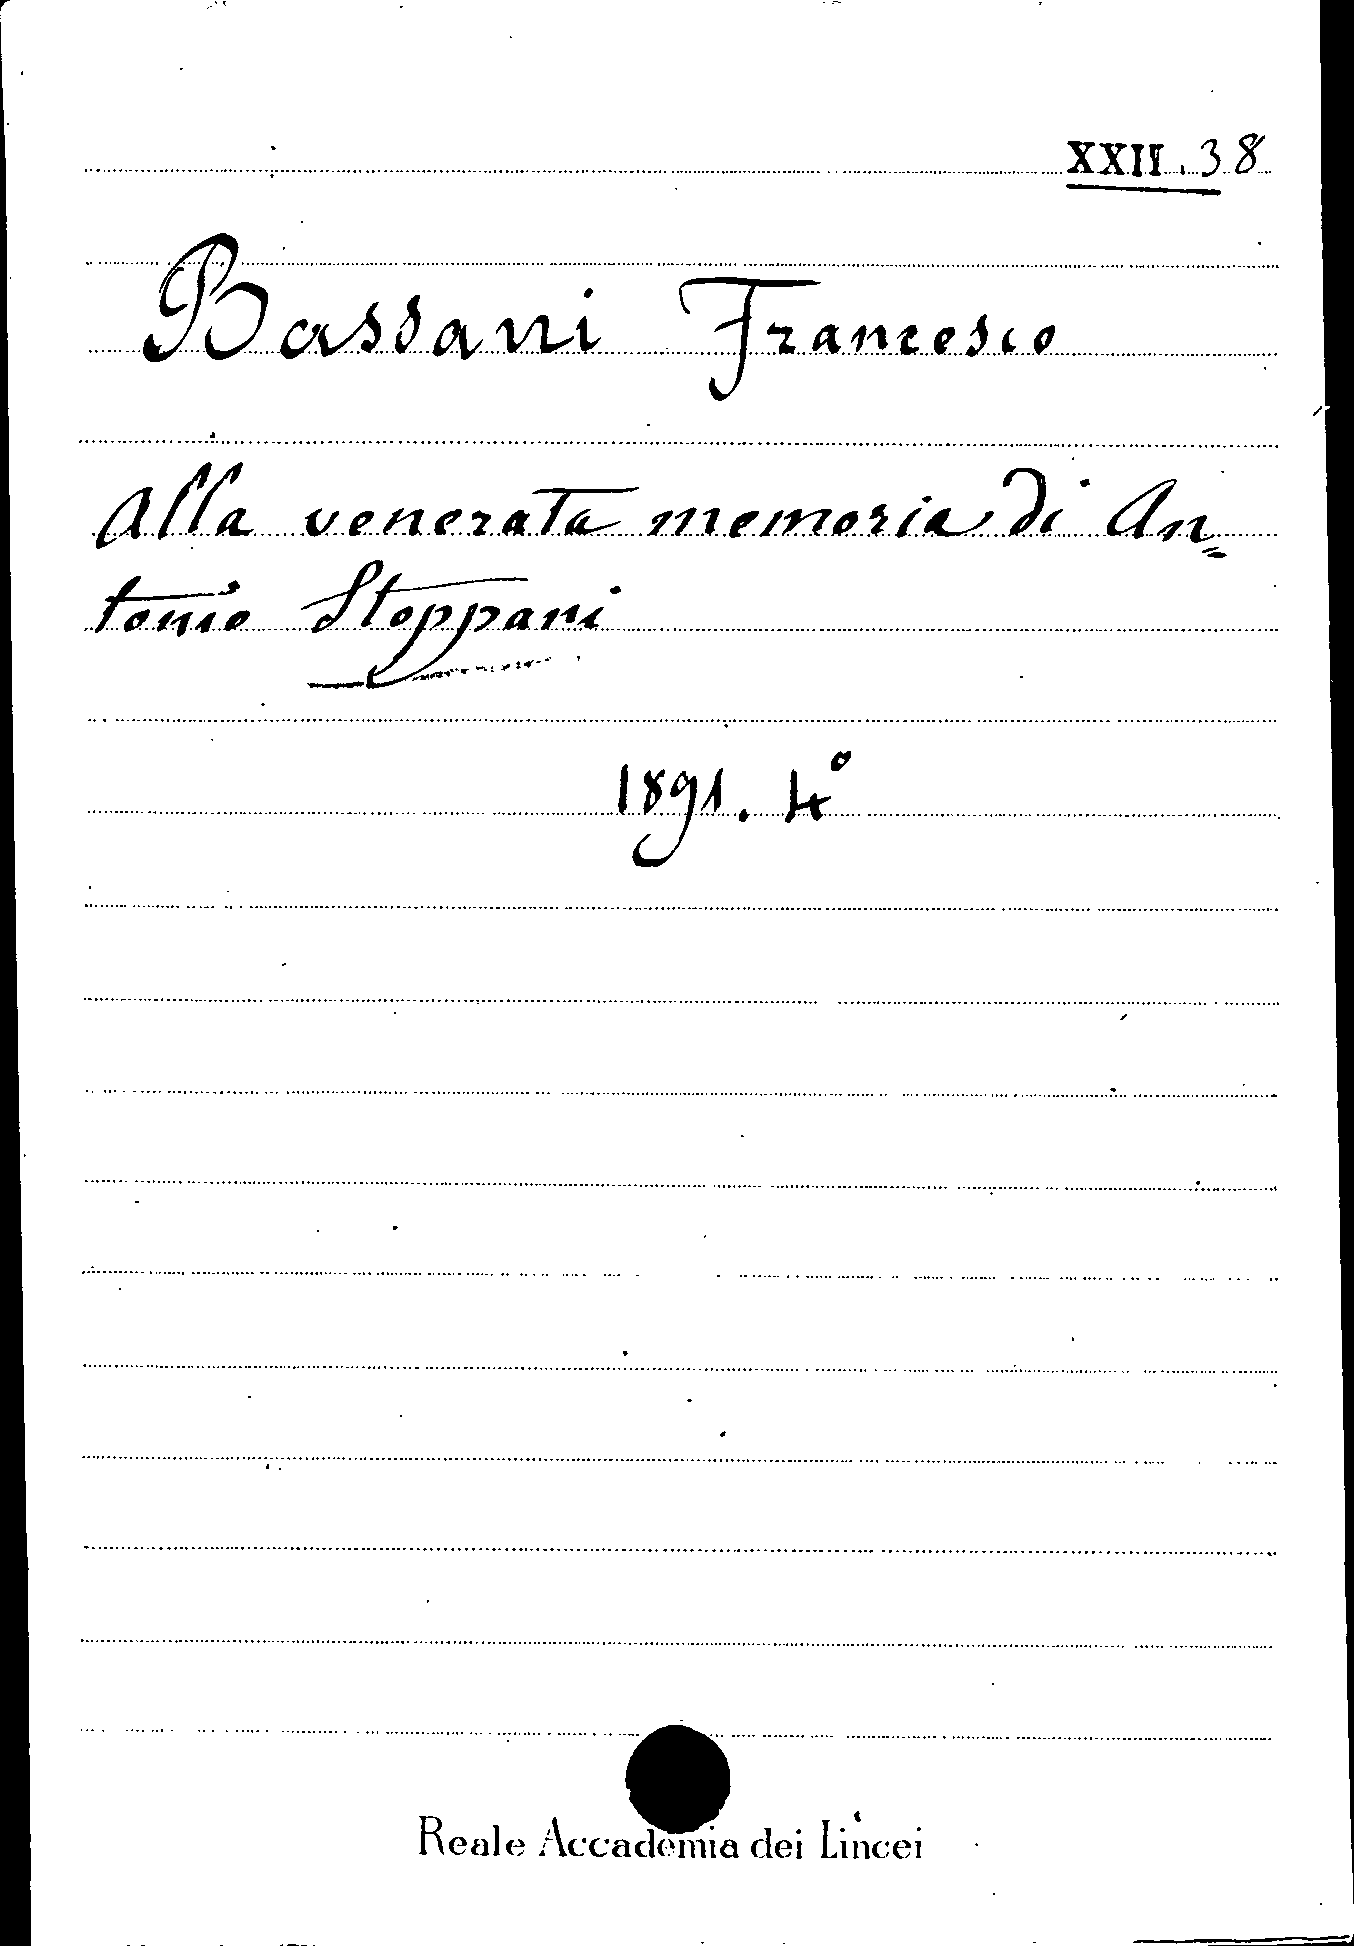 XXII.38
Bassani Francesco
Alla venerata memoria di An=
tonio Stoppani
1891. 4°
Reale Accademia dei Lincei